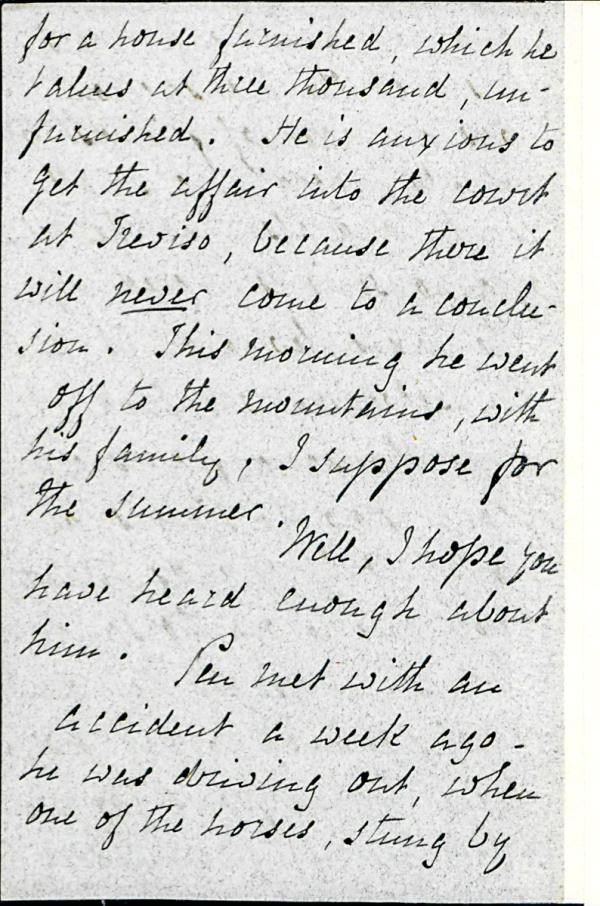 for a house furnished, which he
values at three thousand, un-
furnished. He is anxious to
get the affair into the court
at Treviso, because there it
will never come to a conclu-
sion. This morning he went
off to the mountains, with
his family, I suppose for
the summer.
Well, I hope you
have heard enough about
him. Pen met with an
accident a week ago -
he was driving out, when
one of the horses, stung by